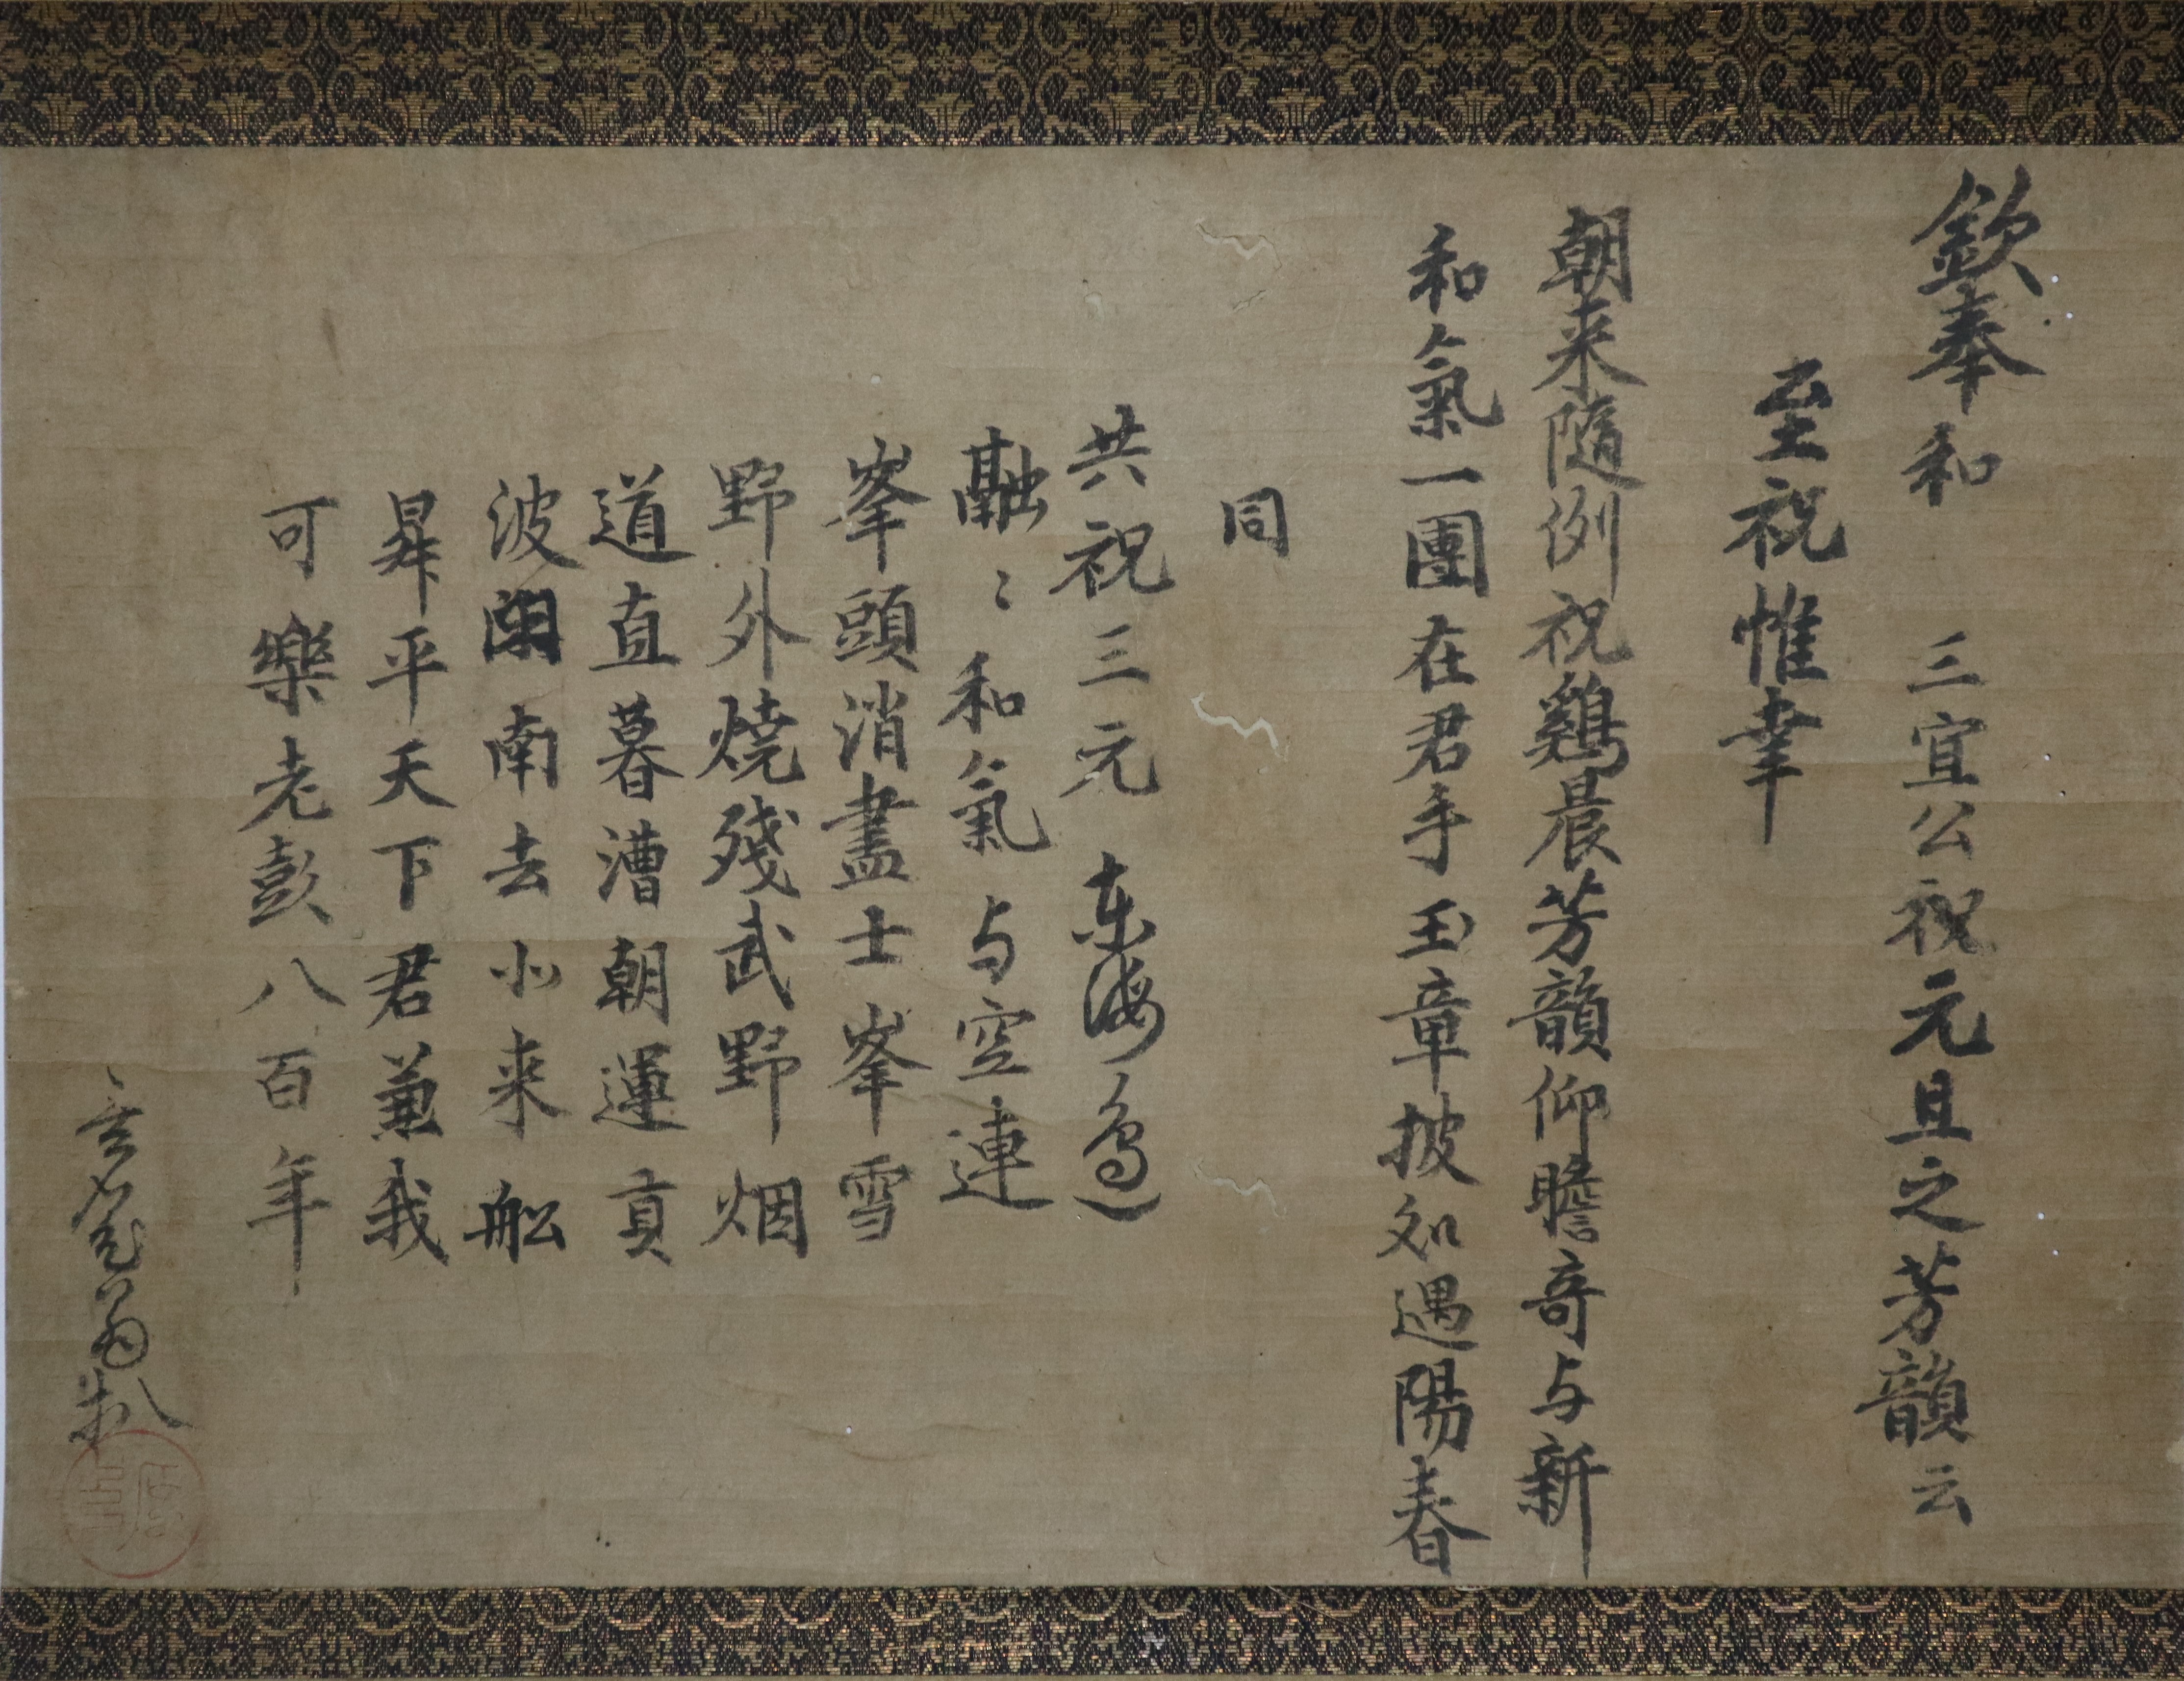 欽奉和　三宜公祝元旦之芳韻云
至祝惟幸
朝来隨例祝鷄晨芳韻仰瞻奇与新
和氣一團在君手玉章披如遇陽春
同
共祝三元东海邊
融〻和氣与空連
峯頭消盡士峯雪
野外燒殘武野烟
道直暮漕朝運貢
波閑南去北来船
昇平天下君兼我
可樂老彭八百年